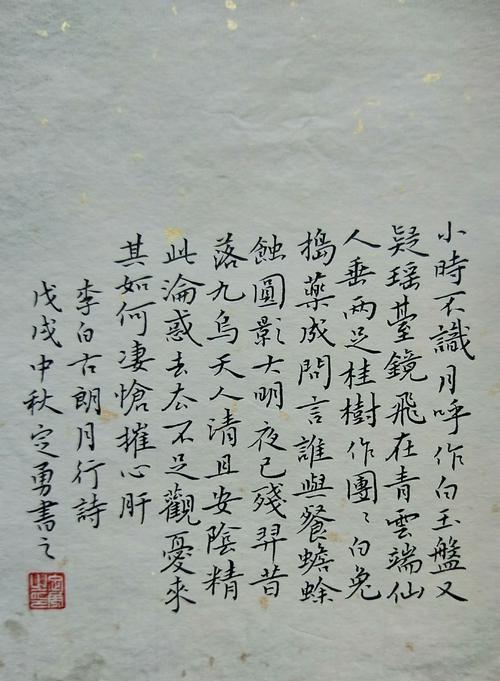 小時不識月呼作白玉盤又
疑瑶臺鏡飛在青雲端仙
人垂兩足桂樹作團〻白兔
搗藥成問言誰與餐蟾蜍
蝕圓影大明夜已殘羿昔
落九烏天人清且安陰精
此淪惑去去不足觀憂來
其如何凄愴摧心肝
李白古朗月行詩
戊戌中秋定勇書之